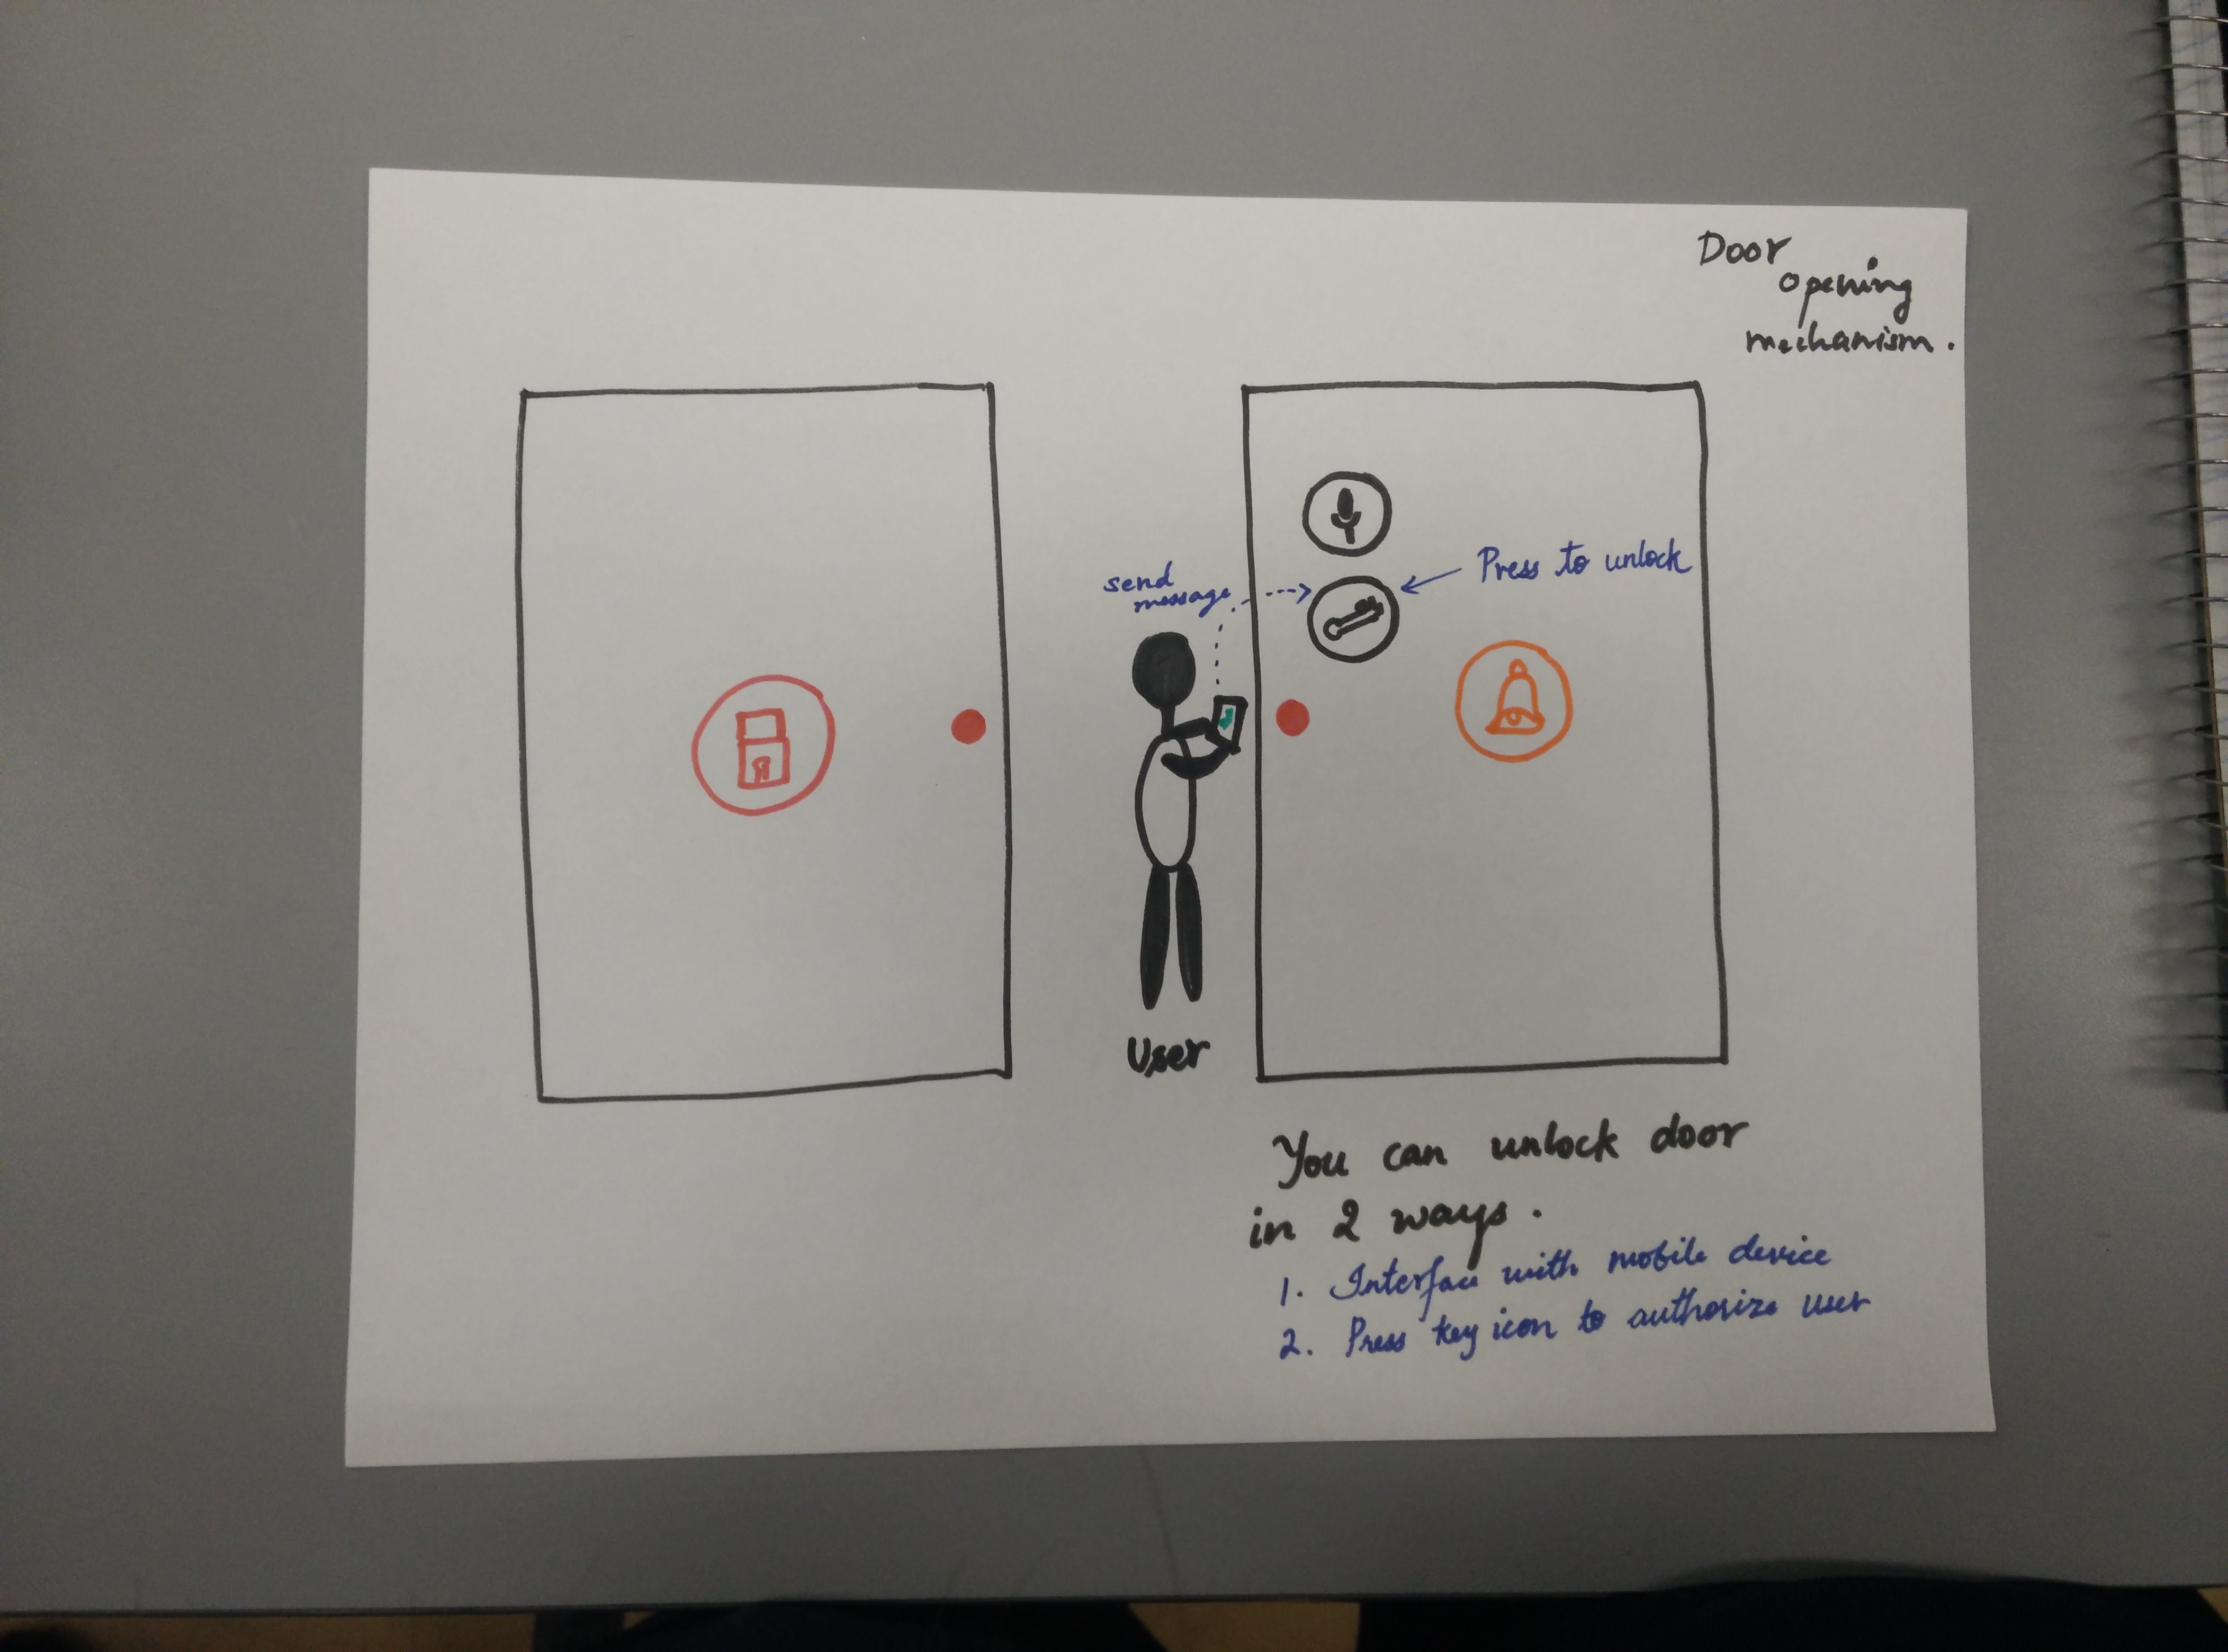 Door
opening
mechanism.
send
message
Press to unlock
User
You can unlock door
in 2 ways.
1. Interface with mobile device
2. Press key icon to authorize user